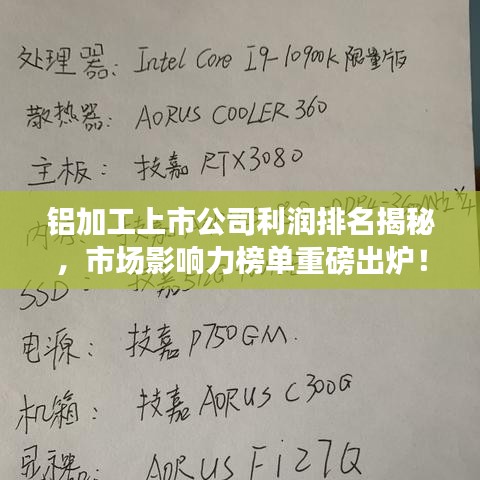 处理器: Intel Core I9-10900K 限量版
散热器: AORUS COOLER 360
主板: 技嘉 RTX3080
铝加工上市公司利润排名揭秘
，市场影响力榜单重磅出炉！
SSD: 技嘉512G
电源: 技嘉 P750GM.
机箱: 技嘉 AORUS C300G
显示器: AORUS FI27Q